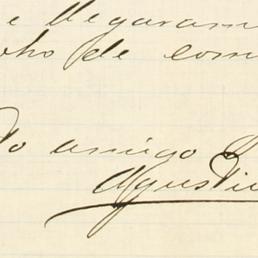 e llegaram
cho de com
To amigo
Agustin